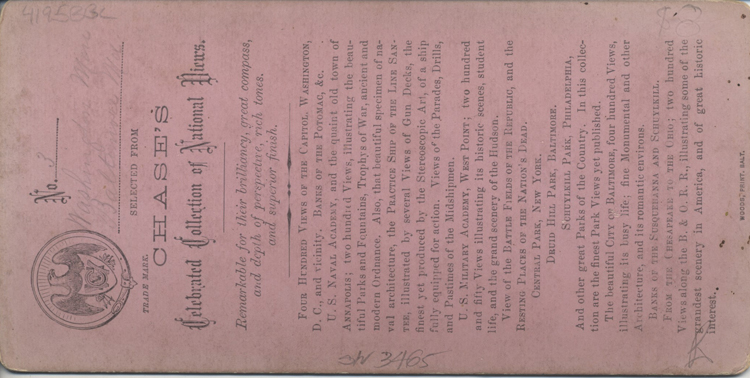 4195EBL
No. 3
TRADE MARK.
SELECTED FROM
CHASE'S
Celebrated Collection of National Views.
Remarkable for their brilliancy, great compass,
and depth of perspective, rich tones,
and superior finish.
FOUR HUNDRED VIEWS OF THE CAPITOL, WASHINGTON,
D. C., and vicinity. BANKS OF THE POTOMAC, &c.
U. S. NAVAL ACADEMY, and the quaint old town of
ANNAPOLIS; two hundred Views, illustrating the beau-
tiful Parks and Fountains, Trophys of War, ancient and
modern Ordnance. Also, that beautiful specimen of na-
val architecture, the PRACTICE SHIP OF THE LINE SAN-
TEE, illustrated by several Views of Gun Decks, the
finest yet produced by the Stereoscopic Art, of a ship
fully equipped for action. Views of the Parades, Drills,
and Pastimes of the Midshipmen.
U. S. MILITARY ACADEMY, WEST POINT; two hundred
and fifty Views illustrating its historic scenes, student
life, and the grand scenery of the Hudson.
View of the BATTLE FIELDS OF THE REPUBLIC, and the
RESTING PLACES OF THE NATION'S DEAD.
CENTRAL PARK, NEW YORK.
DRUID HILL PARK, BALTIMORE.
SCHUYLKILL PARK, PHILADELPHIA;
And other great Parks of the Country. In this collec-
tion are the finest Park Views yet published.
The beautiful CITY OF BALTIMORE, four hundred Views,
illustrating its busy life: fine Monumental and other
Architecture, and its romantic environs.
BANKS OF THE SUSQUEHANNA AND SCHUYLKILL.
FROM THE CHESAPEAKE TO THE OHIO; two hundred
Views along the B. & O. R. R., illustrating some of the
grandest scenery in America, and of great historic
interest.
WOODS, PRINT, BALT.
SW 3465